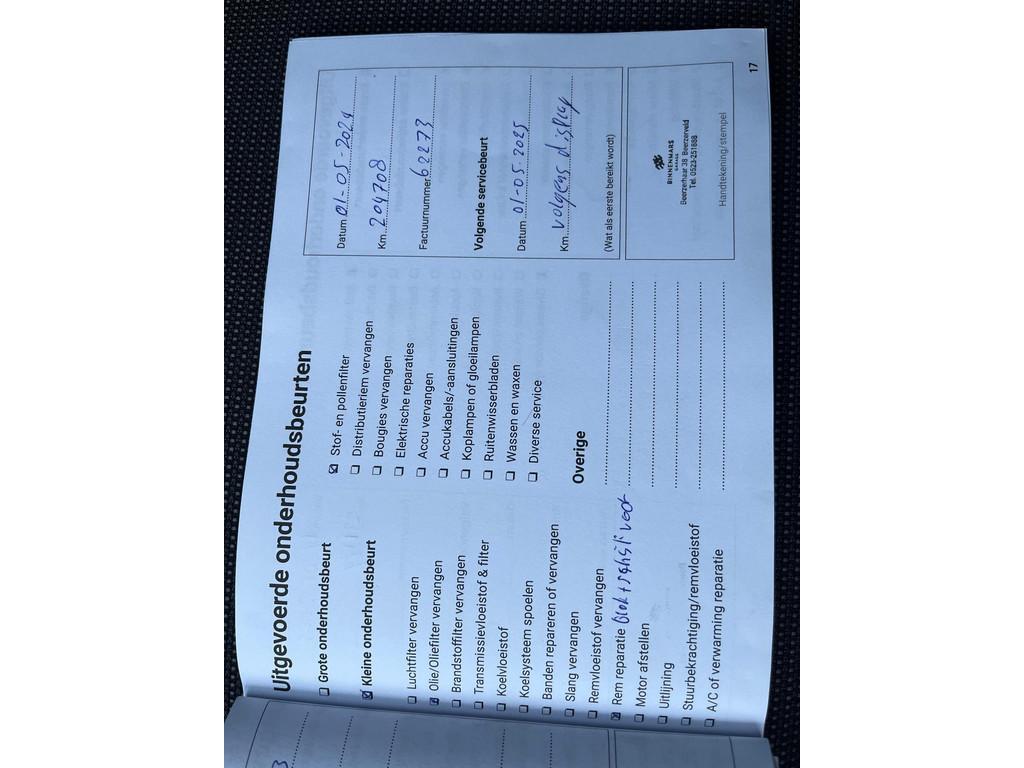 Uitgevoerde onderhoudsbeurten
Grote onderhoudsbeurt
Kleine onderhoudsbeurt
Luchtfilter vervangen
Olie/Oliefilter vervangen
Brandstoffilter vervangen
Transmissievloeistof & filter
Koelvloeistof
Koelsysteem spoelen
Banden repareren of vervangen
Slang vervangen
Remvloeistof vervangen
Rem reparatie Blok+schijf voor
Motor afstellen
Uitlijning
Stuurbekrachtiging/remvloeistof
A/C of verwarming reparatie
Stof- en pollenfilter
Distributieriem vervangen
Bougies vervangen
Elektrische reparaties
Accu vervangen
Accukabels/-aansluitingen
Koplampen of gloeilampen
Ruitenwisserbladen
Wassen en waxen
Diverse service
Overige
Datum 01-05-2024
Km. 204708
Factuurnummer 62273
Volgende servicebeurt
Datum 01-05-2025
Km. volgens display
(Wat als eerste bereikt wordt)
BINNENMARS
GARAGE
Beerzerhaar 38 Beerzerveld
Tel. 0523-251888
Handtekening/stempel
17
3